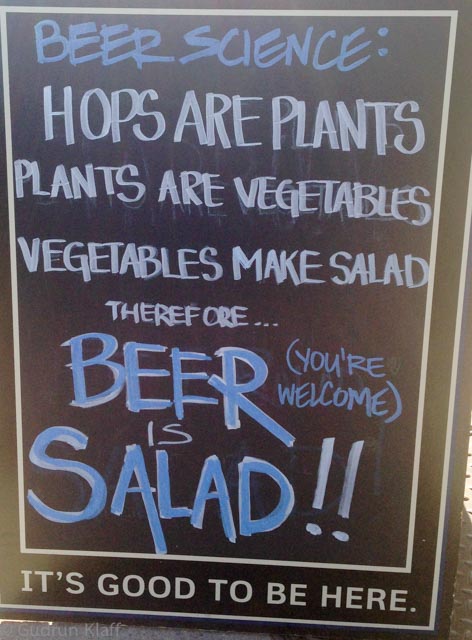 BEER SCIENCE:
HOPS ARE PLANTS
PLANTS ARE VEGETABLES
VEGETABLES MAKE SALAD
THEREFORE...
BEER (YOU'RE WELCOME)
IS
SALAD!!
IT'S GOOD TO BE HERE.
© Gudrun Klaff